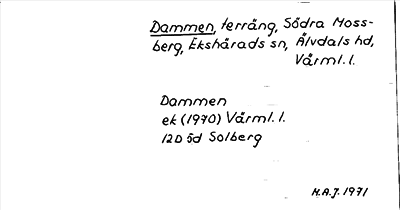 Dammen, terräng, Södra Moss-
berg, Ekshärads sn, Älvdals hd,
Värml. l.
Dammen
ek (1970) Värml. l.
12D 5d Solberg
H.A.J. 1971